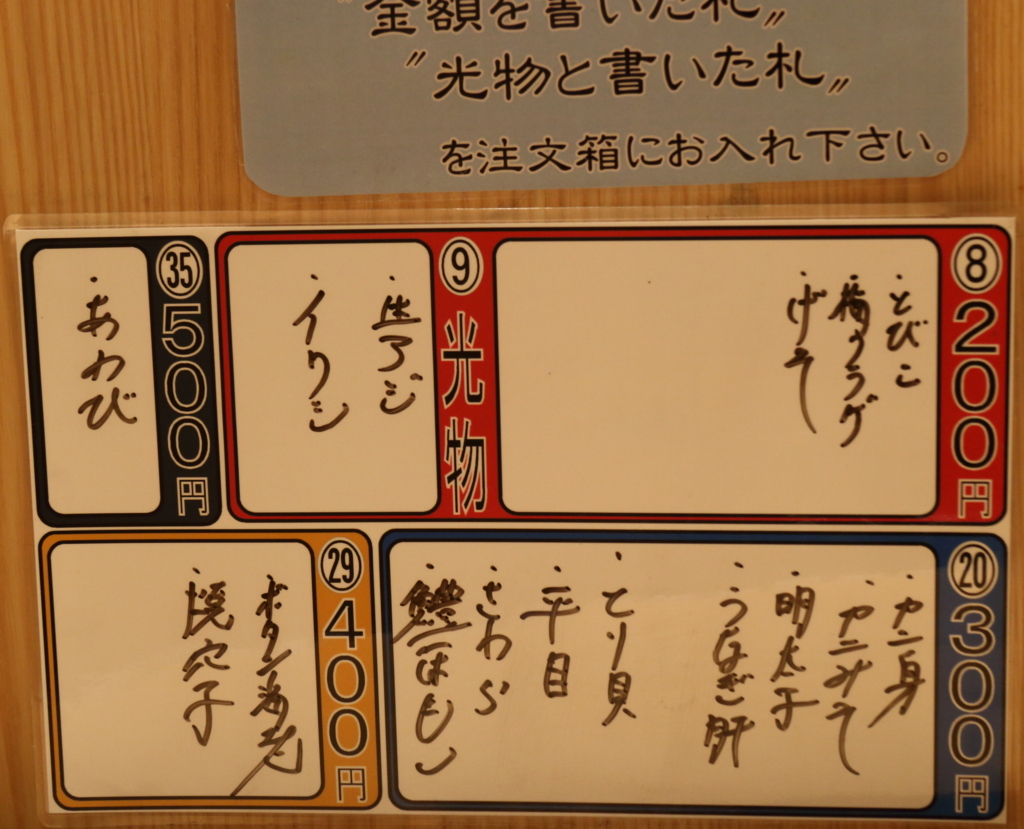 金額を書いた札〟
〝光物と書いた札〟
を注文箱にお入れ下さい。
⑧200円
・とびこ
・梅クラゲ
・げそ
⑨光物
・生アジ
・イワシ
㉟500円
・あわび
⑳300円
・カニ身
・カニみそ
・明太子
・うなぎ肝
・とり貝
・平目
・さわら
・鱧(はも)
㉙400円
・ボタン海老
・焼穴子